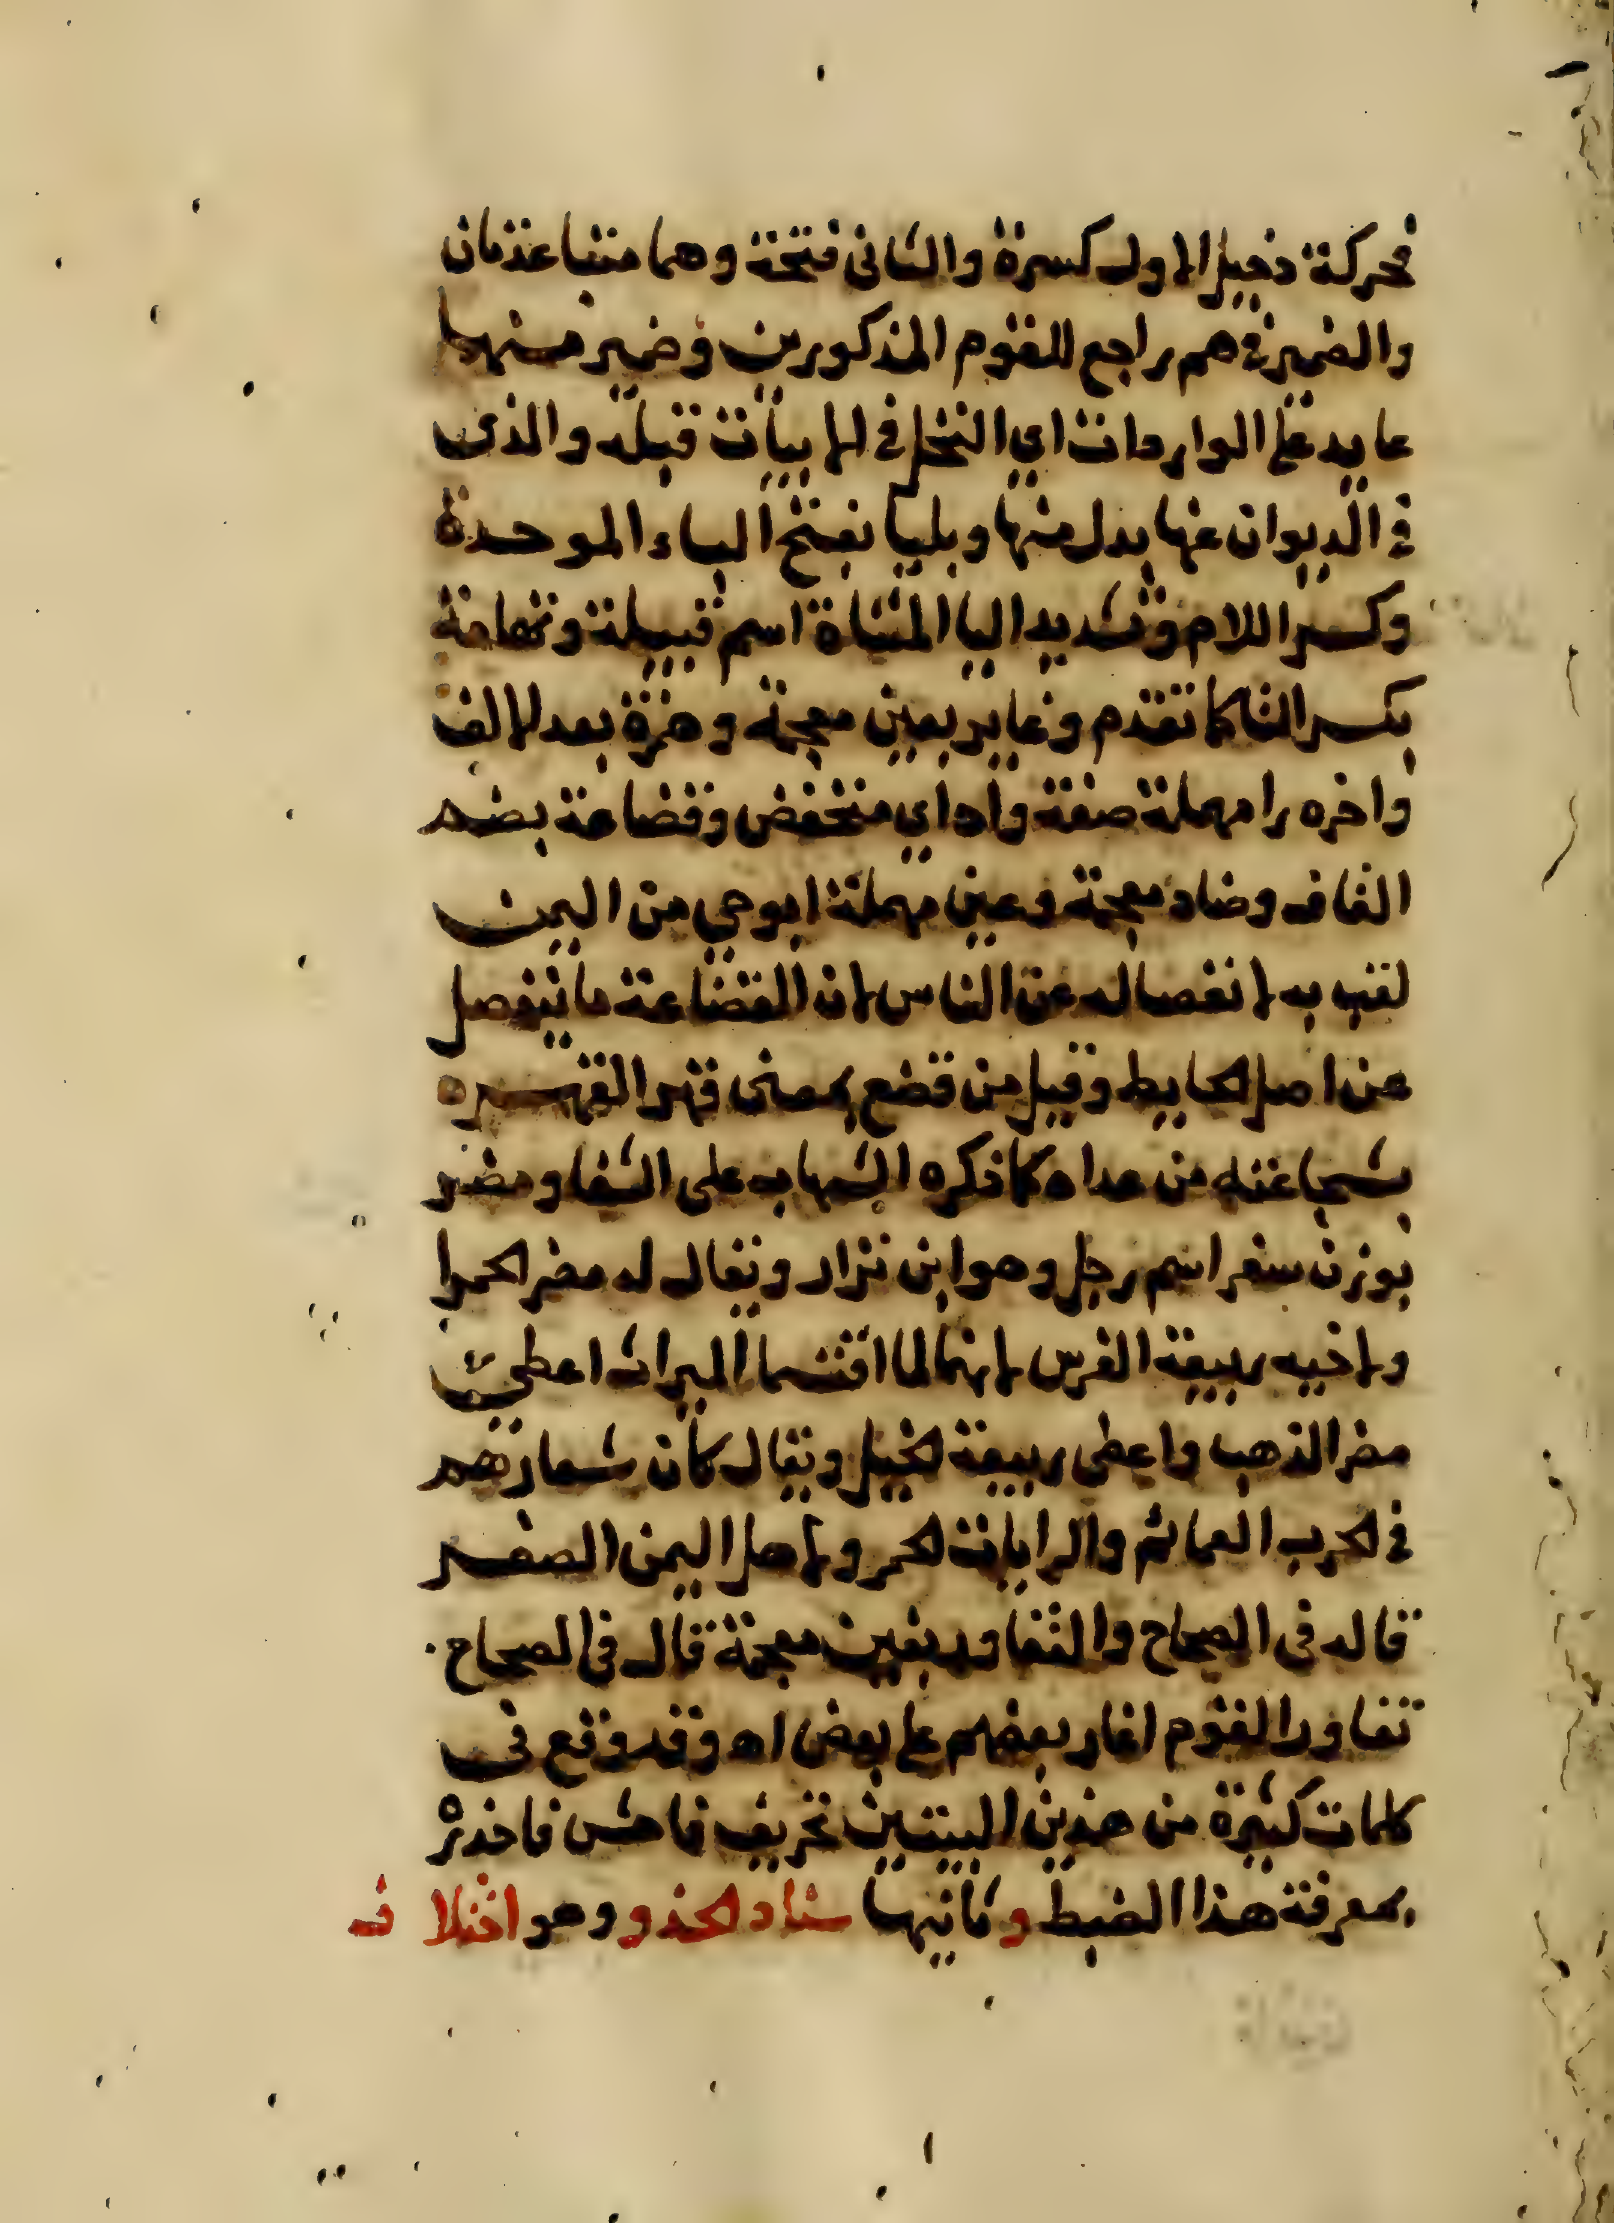 فحركة دخيل الاول كسرة والثانى فتحة وهما متباعدتان
والضمير في هم راجع للقوم المذكورين وضمير منها
عايد على الواردات اي النخل في الابيات قبله والذى
في الديوان عنها بدل منها وبليا بفتح الباء الموحدة
وكسر اللام وتشديد اليا المثناة اسم قبيلة وتهامة
بكسر التا كما تقدم وغاير بغين معجمة وهمزة بعد الالف
واخره را مهملة صفة واد اي منخفض وقضاعة بضم
القاف وضاد معجمة وعين مهملة ابو حي من اليمن
لقب به لانفصاله عن الناس لان القضاعة ما ينفصل
عن اصل الحايط وقيل من قضع بمعنى قهر القهره
بشجاعته من عداه كما ذكره الشهاب على الشفا ومضر
بوزن سفر اسم رجل وهو ابن نزار ويقال له مضر الحمرا
ولاخيه ربيعة الفرس لانهما لما اقتسما الميراث اعطي
مضر الذهب واعطى ربيعة الخيل ويقال كان شعارهم
في الحرب العمائم والرايات الحمر ولاهل اليمن الصفر
قاله فى الصحاح والتغاور بغين معجمة قال فى الصحاح
تغاور القوم اغار بعضهم على بعض اه وقد وقع فى
كلمات كثيرة من هذين البيتين تحريف فاحش فاحذره
بمعرفة هذا الضبط وثانيها سناد الحذو وهو اختلاف